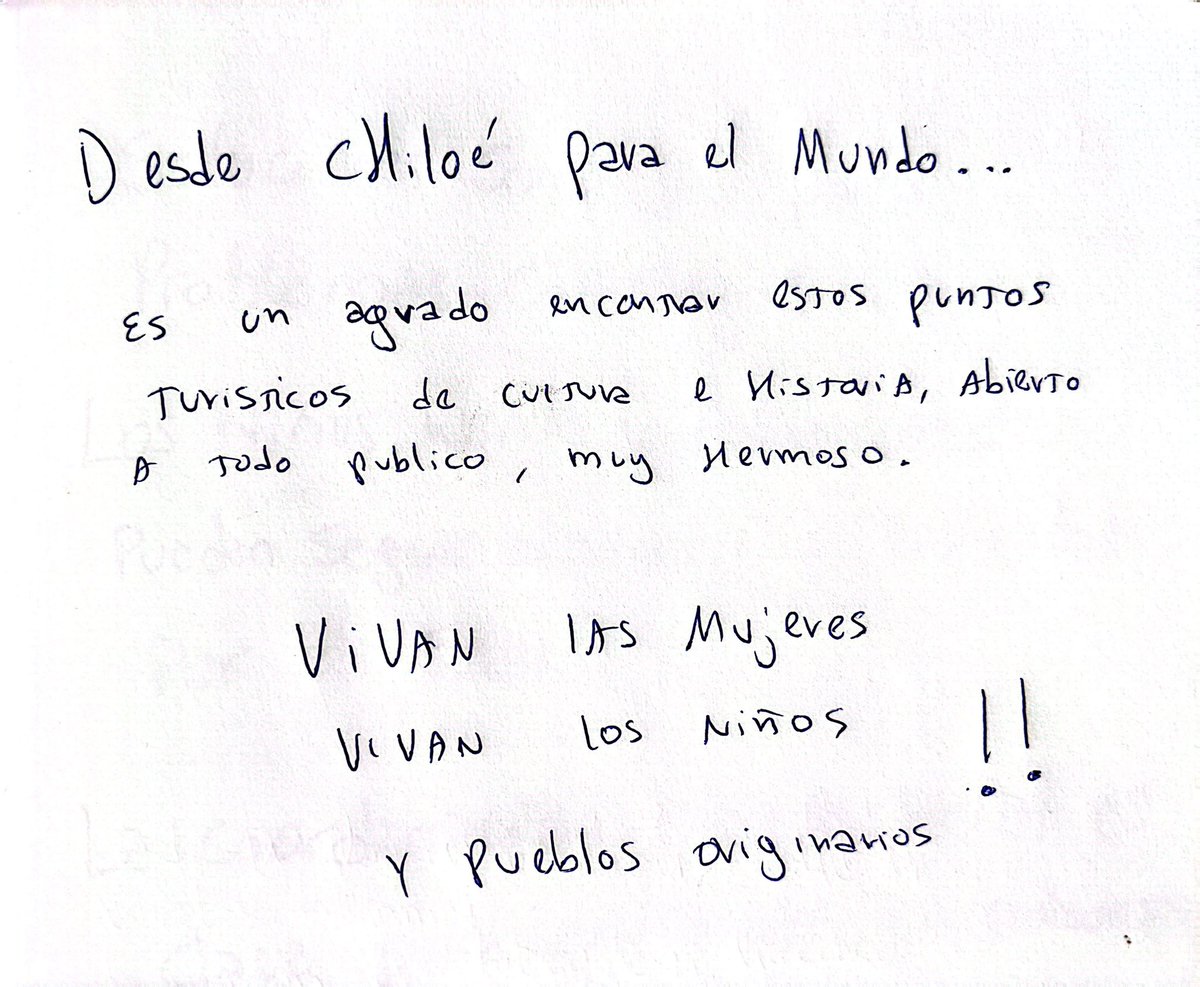 Desde CHiloé para el Mundo...
Es un agrado encontrar estos puntos
Turisticos de cultura e Historia, Abierto
A todo publico, muy Hermoso.
ViVAN lAs Mujeres
ViVAN los Niños !!
y pueblos originarios